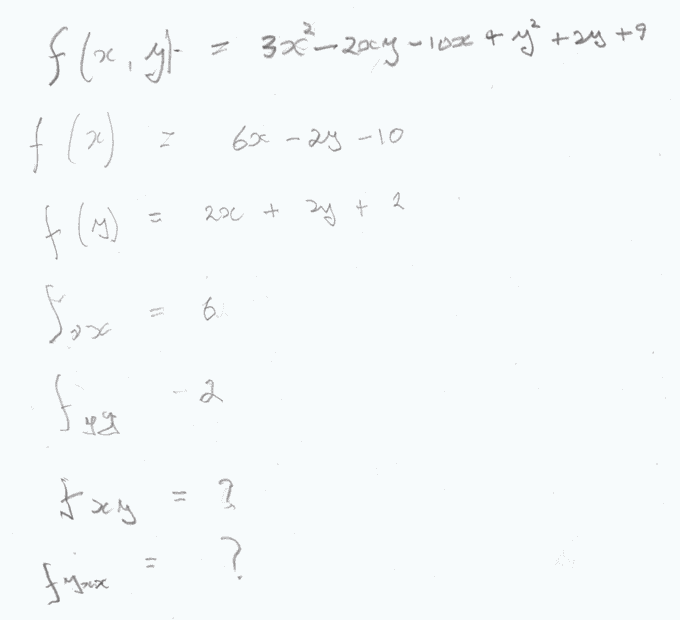 f(x, y) = 3x² - 2xy - 10x + y² + 2y + 9
f(x) = 6x - 2y - 10
f(y) = 2x + 2y + 2
fxx = 6
fyy - 2
fxy = ?
fyxx = ?